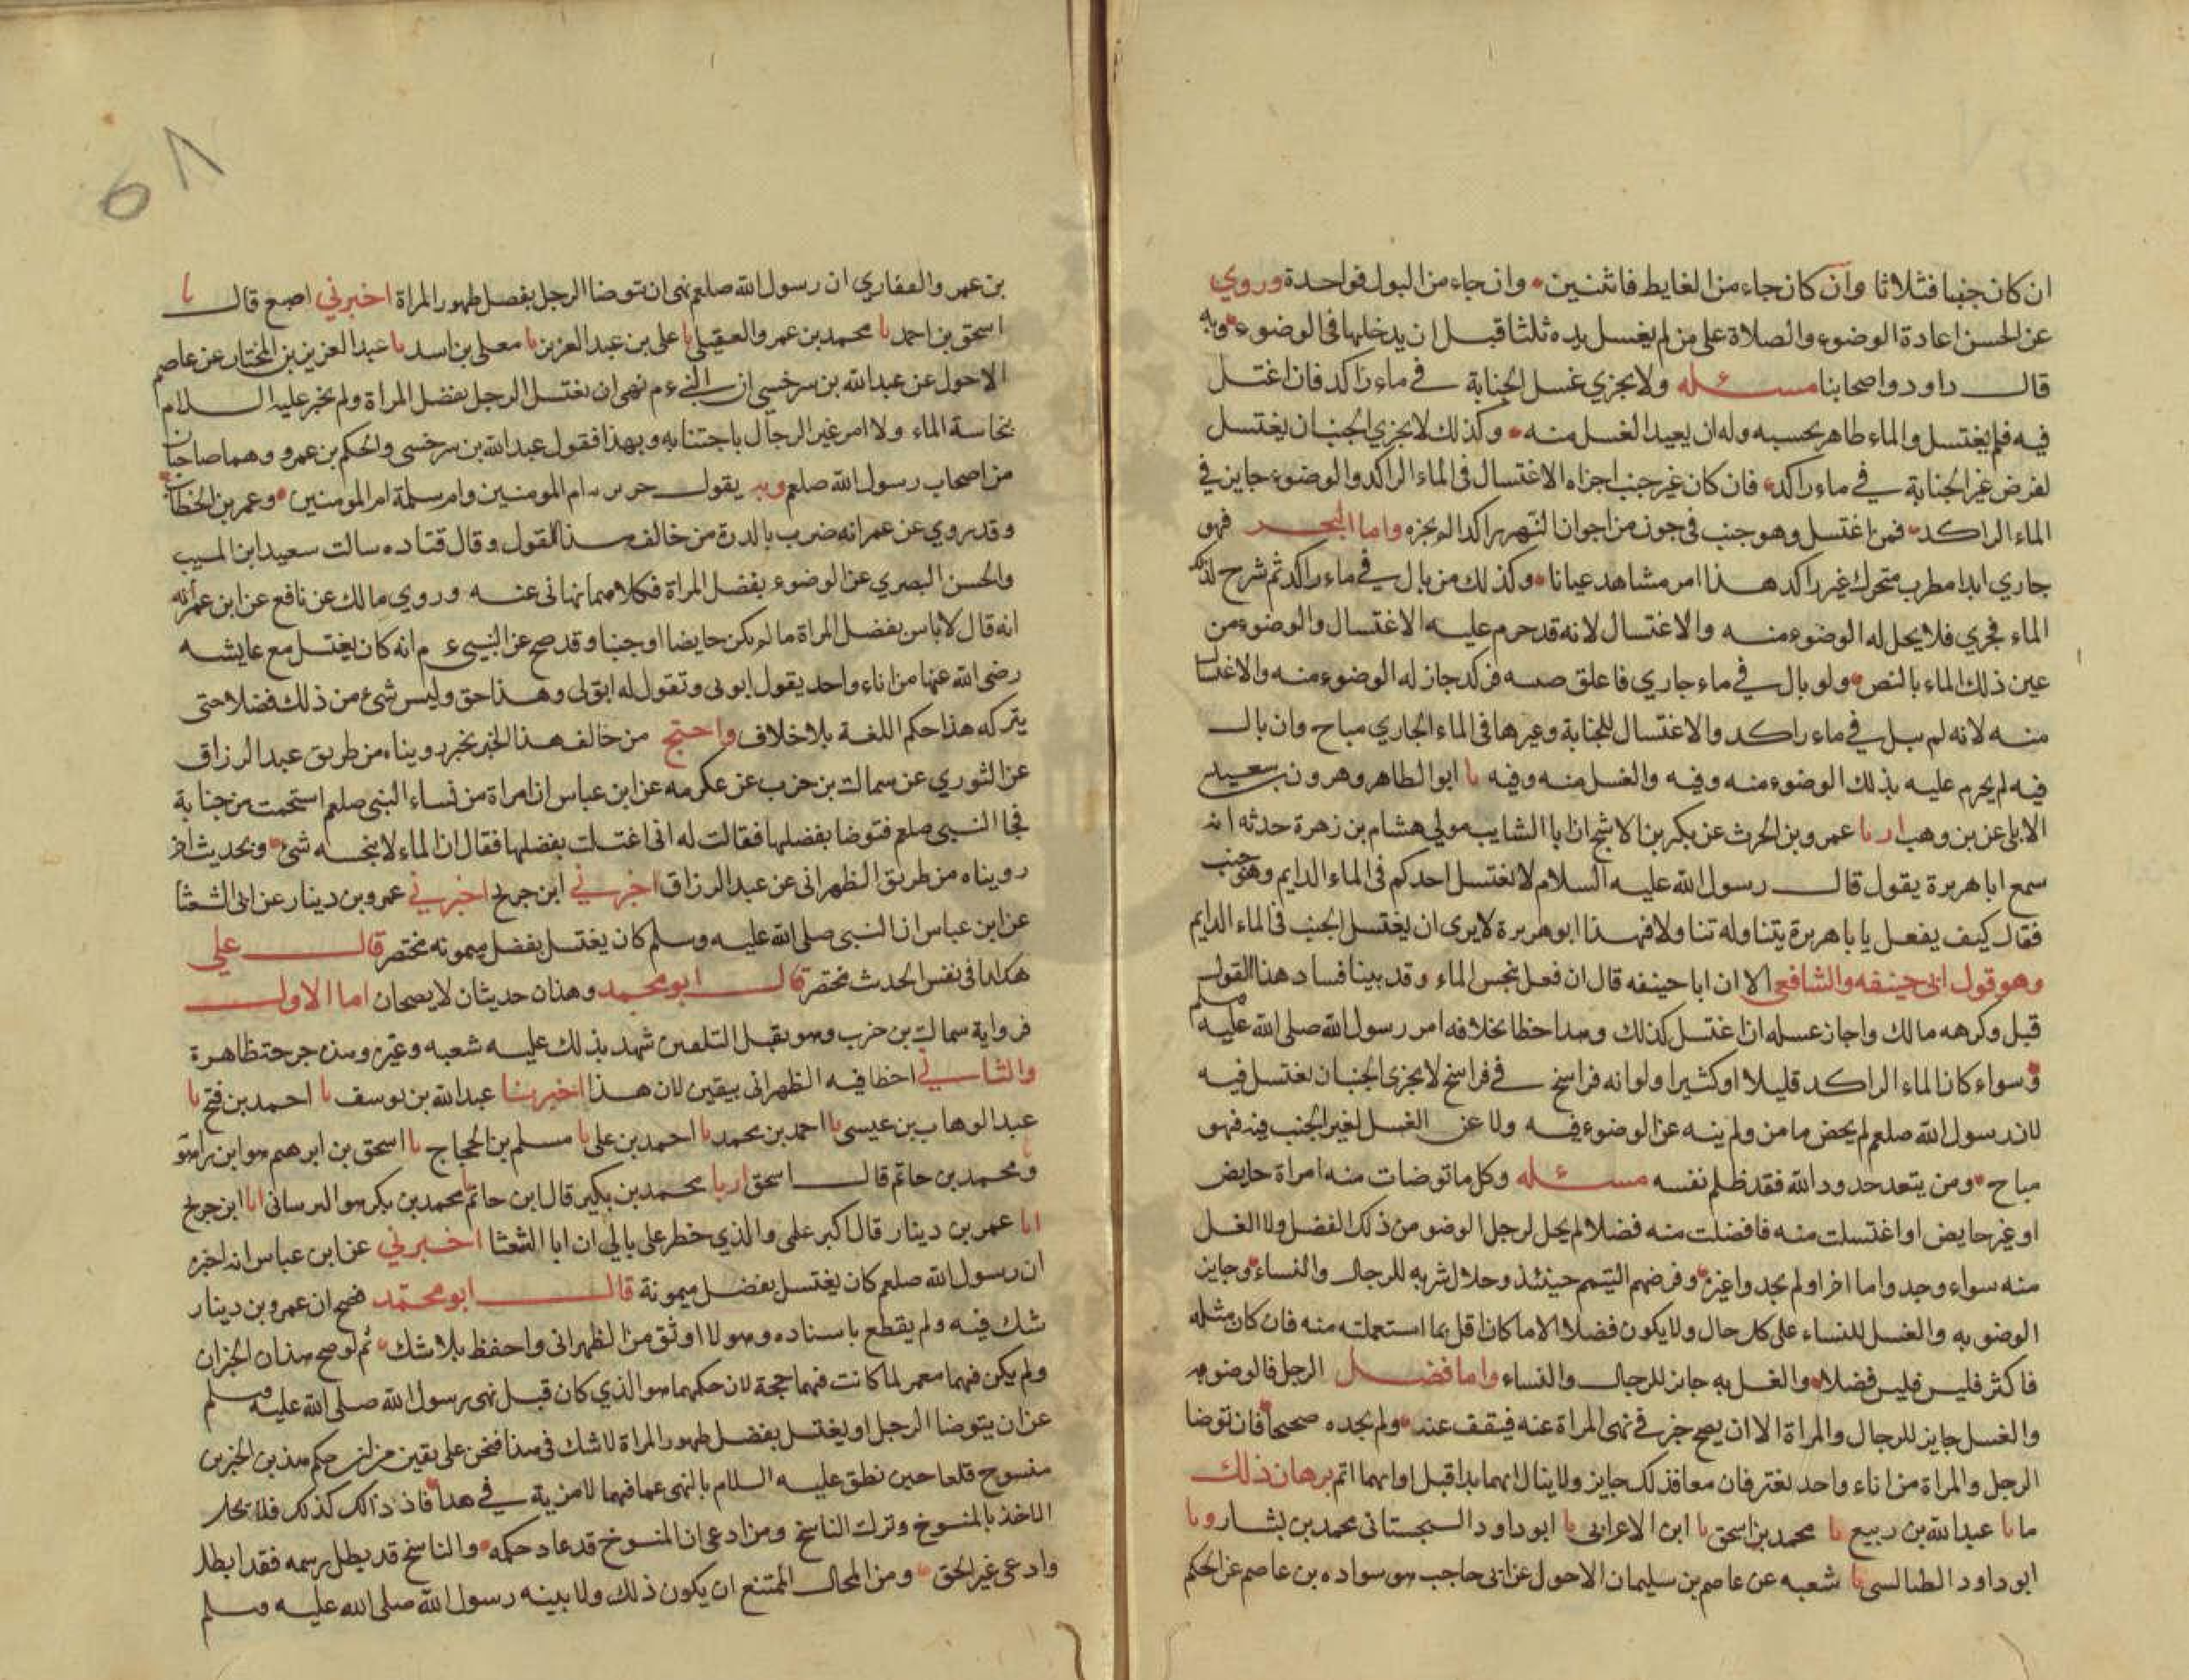 ان كان جنبا فثلاثا وان كان جاء من الغايط فاثنين وان جاء من البول فواحدة وروي
عن الحسن اعادة الوضوء والصلاة على من لم يغسل يده ثلثا قبل ان يدخلها في الوضوء وبه
قال داود واصحابنا مسئله ولا يجزي غسل الجنابة في ماء راكد فان اغتسل
فيه فلم يغتسل والماء طاهر بحسبه وله ان يعيد الغسل منه وكذلك لا يجزي الجنب ان يغتسل
لفرض غير الجنابة في ماء راكد فان كان غير جنب اجزاه الاغتسال في الماء الراكد والوضوء جايز في
الماء الراكد فمن اغتسل وهو جنب في جون من اجوان النهر راكدا لم يجزه واما البحر فهو
جاري ابدا مطرب متحرك غير راكد هذا امر مشاهد عيانا وكذلك من بال في ماء راكد ثم شرح لذلك
الماء فجري فلا يحل له الوضوء منه والاغتسال لانه قد حرم عليه الاغتسال والوضوء من
عين ذلك الماء بالنص ولو بال في ماء جاري فاغلق صبه فركد جاز له الوضوء منه والاغتسال
منه لانه لم يبل في ماء راكد والاغتسال للجنابة وغيرها في الماء الجاري مباح وان بال
فيه لم يحرم عليه بذلك الوضوء منه وفيه والغسل منه وفيه نا ابو الطاهر وهرون بن سعيد
الايلي عن بن وهب ارنا عمرو بن الحرث عن بكر بن الاشج ان ابا السايب مولي هشام بن زهرة حدثه انه
سمع ابا هريرة يقول قال رسول الله عليه السلام لا يغتسل احدكم في الماء الدايم وهو جنب
فقال كيف يفعل يا با هريرة يتناوله تناولا فهذا ابو هريرة لا يرى ان يغتسل الجنب في الماء الدايم
وهو قول ابي حنيفه والشافعي الا ان ابا حنيفه قال ان فعل نجس الماء وقد بينا فساد هذا القول
قبل وكرهه مالك واجاز غسله اذا اغتسل كذلك وهذا خطا بخلافه امر رسول الله صلى الله عليه وسلم
وسواء كان الماء الراكد قليلا او كثيرا ولو انه فراسخ في فراسخ لا يجزي الجنب ان يغتسل فيه
لان رسول الله صلعم لم يخص ما من ولم ينه عن الوضوء فيه ولا عن الغسل لغير الجنب فيه فهو
مباح ومن يتعد حدود الله فقد ظلم نفسه مسئله وكل ما توضات منه امراة حايض
او غير حايض او اغتسلت منه فافضلت منه فضلا لم يحل لرجل الوضو من ذلك الفضل ولا الغسل
منه سواء وجد واما اخر او لم يجد واغيره وفرضهم التيمم حينئذ وحلال شربه للرجال والنساء وجايز
الوضو به والغسل للنساء على كل حال ولا يكون فضلا الا ما كان اقل مما استعملته منه فان كان مثله
فاكثر فليس فليس فضلا والغسل به جائز للرجال والنساء واما فضل الرجل فالوضو به
والغسل جايز للرجال والمراة الا ان يصح خبر في نهي المراة عنه فيقف عنده ولم يجده صحيحا فان توضا
الرجل والمراة من اناء واحد يغترفان معا فذلك جايز ولا ينال ايهما بدا قبل او ايهما اتم برهان ذلك
ما نا عبد الله بن ربيع نا محمد بن اسحق نا ابن الاعرابي نا ابو داود السجستاني محمد بن بشار ونا
ابو داود الطيالسي نا شعبه عن عاصم بن سليمان الاحول عن ابي حاجب هو سواده بن عاصم عن الحكم
٥٨
بن عمرو الغفاري ان رسول الله صلعم نهى ان توضا الرجل بفضل طهور المراة اخبرني اصبغ قال نا
اسحق بن احمد نا محمد بن عمرو العقيلي نا علي بن عبد العزيز نا معلى بن اسد نا عبد العزيز بن المختار عن عاصم
الاحول عن عبد الله بن سرخسي ان النبيء م نهى ان يغتسل الرجل بفضل المراة ولم يخبر عليه السلام
بنجاسة الماء ولا امر غير الرجال باجتنابه وبهذا فقول عبد الله بن سرخسي والحكم بن عمرو وهما صاحبان
من اصحاب رسول الله صلعم وبه يقول ام المومنين وام سلمة ام المومنين وعمر بن الخطاب
وقد روي عن عمر انه ضرب بالدرة من خالف هذا القول وقال قتاده سالت سعيد ابن المسيب
والحسن البصري عن الوضوء بفضل المراة فكلاهما نهاني عنه وروي مالك عن نافع عن ابن عمر انه
انه قال لا باس بفضل المراة ما لم يكن حايضا او جنبا وقد صح عن النبيء م انه كان يغتسل مع عايشه
رضي الله عنها من اناء واحد يقول ابوني وتقول له ابق لي وهذا حق وليس شئ من ذلك فضلا حتى
يتركه هذا حكم اللغة بلا خلاف واحتج من خالف هذا الخبر بخبر رويناه من طريق عبد الرزاق
عن الثوري عن سماك بن حرب عن عكرمه عن ابن عباس ان امراة من نساء النبي صلعم استحمت من جنابة
فجا النبي صلعم فتوضا بفضلها فقالت له اني اغتسلت بفضلها فقال ان الماء لا ينجسه شئ وبحديث اخر
رويناه من طريق الظهراني عن عبد الرزاق اخبرني ابن جريج اخبرني عمرو بن دينار عن ابي الشعثا
عن ابن عباس ان النبي صلى الله عليه وسلم كان يغتسل بفضل ميمونه مختصر قال علي
هكذا في نفس الحدث مختصر قال ابو محمد وهذان حديثان لا يصحان اما الاول
فرواية سماك بن حرب وهو يقبل التلقين شهد بذلك عليه شعبه وغيره وهذه جرحة ظاهرة
والثاني اخطا فيه الظهراني بيقين لان هذا اخبرنا عبد الله بن يوسف نا احمد بن فتح نا
عبد الوهاب بن عيسى نا احمد بن محمد نا احمد بن علي نا مسلم بن الحجاج نا اسحق بن ابرهم هو ابن راهو
ومحمد بن حاتم قال اسحق ارنا محمد بن بكير قال ابن حاتم نا محمد بن بكر هو البرساني انا ابن جريج
انا عمر بن دينار قال اكبر علمي والذي خطر على بالي ان ابا الشعثا اخبرني عن ابن عباس انه اخبره
ان رسول الله صلعم كان يغتسل بفضل ميمونة قال ابو محمد فصح ان عمرو بن دينار
شك فيه ولم يقطع باسناده وهولا اوثق من الظهراني واحفظ بلا شك ثم لو صح هذان الخبران
ولم يكن فيهما مغمر لما كانت فيهما حجة لان حكمهما هو الذي كان قبل نهى رسول الله صلى الله عليه وسلم
عن ان يتوضا الرجل او يغتسل بفضل طهور المراة لا شك في هذا فنحن على يقين من ان حكم هذين الخبرين
منسوخ قلعا حين نطق عليه السلام بالنهي عما فيهما لا مزية في هذا فاذ ذالك كذلك فلا يحل
الاخذ بالمنسوخ وترك الناسخ ومن ادعى ان المنسوخ قد عاد حكمه والناسخ قد بطل رسمه فقد ابطل
وادعى غير الحق ومن المحال الممتنع ان يكون ذلك ولا يبينه رسول الله صلى الله عليه وسلم